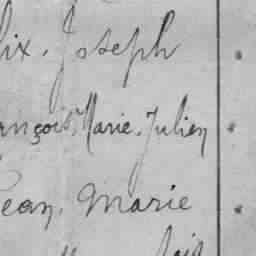 lix. Joseph
ançois, Marie, Julien
Jean, Marie